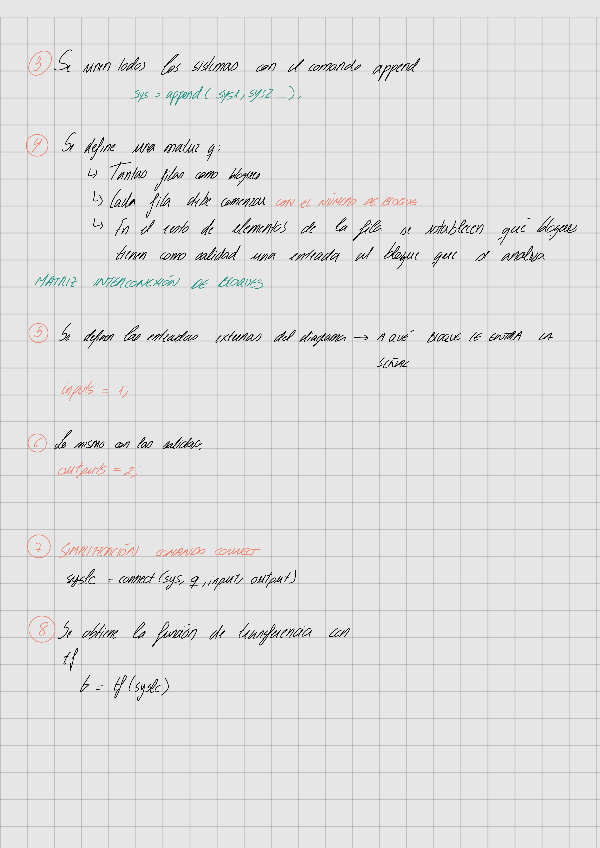 3 Se unen todos los sistemas con el comando append
sys = append( sys1, sys2 ...),
4 Se define una matriz q:
↳ Tantas filas como bloques
↳ Cada fila debe comenzar CON EL NÚMERO DE BLOQUE
↳ En el resto de elementos de la fila se establecen qué bloques
tienen como salidad una entrada al bloque que se analiza
MATRIZ INTERCONEXIÓN DE BLOQUES
5 Se definen las entradas externas del diagrama → A QUÉ BLOQUE LE ENTRA LA
SEÑAL
inputs = 1;
6 Lo mismo con las salidas.
outputs = 2;
7 SIMPLIFICACIÓN COMANDO CONNECT
syslc = connect (sys, q, input, output)
8 Se obtiene la función de transferencia con
tf
G = tf (syslc)